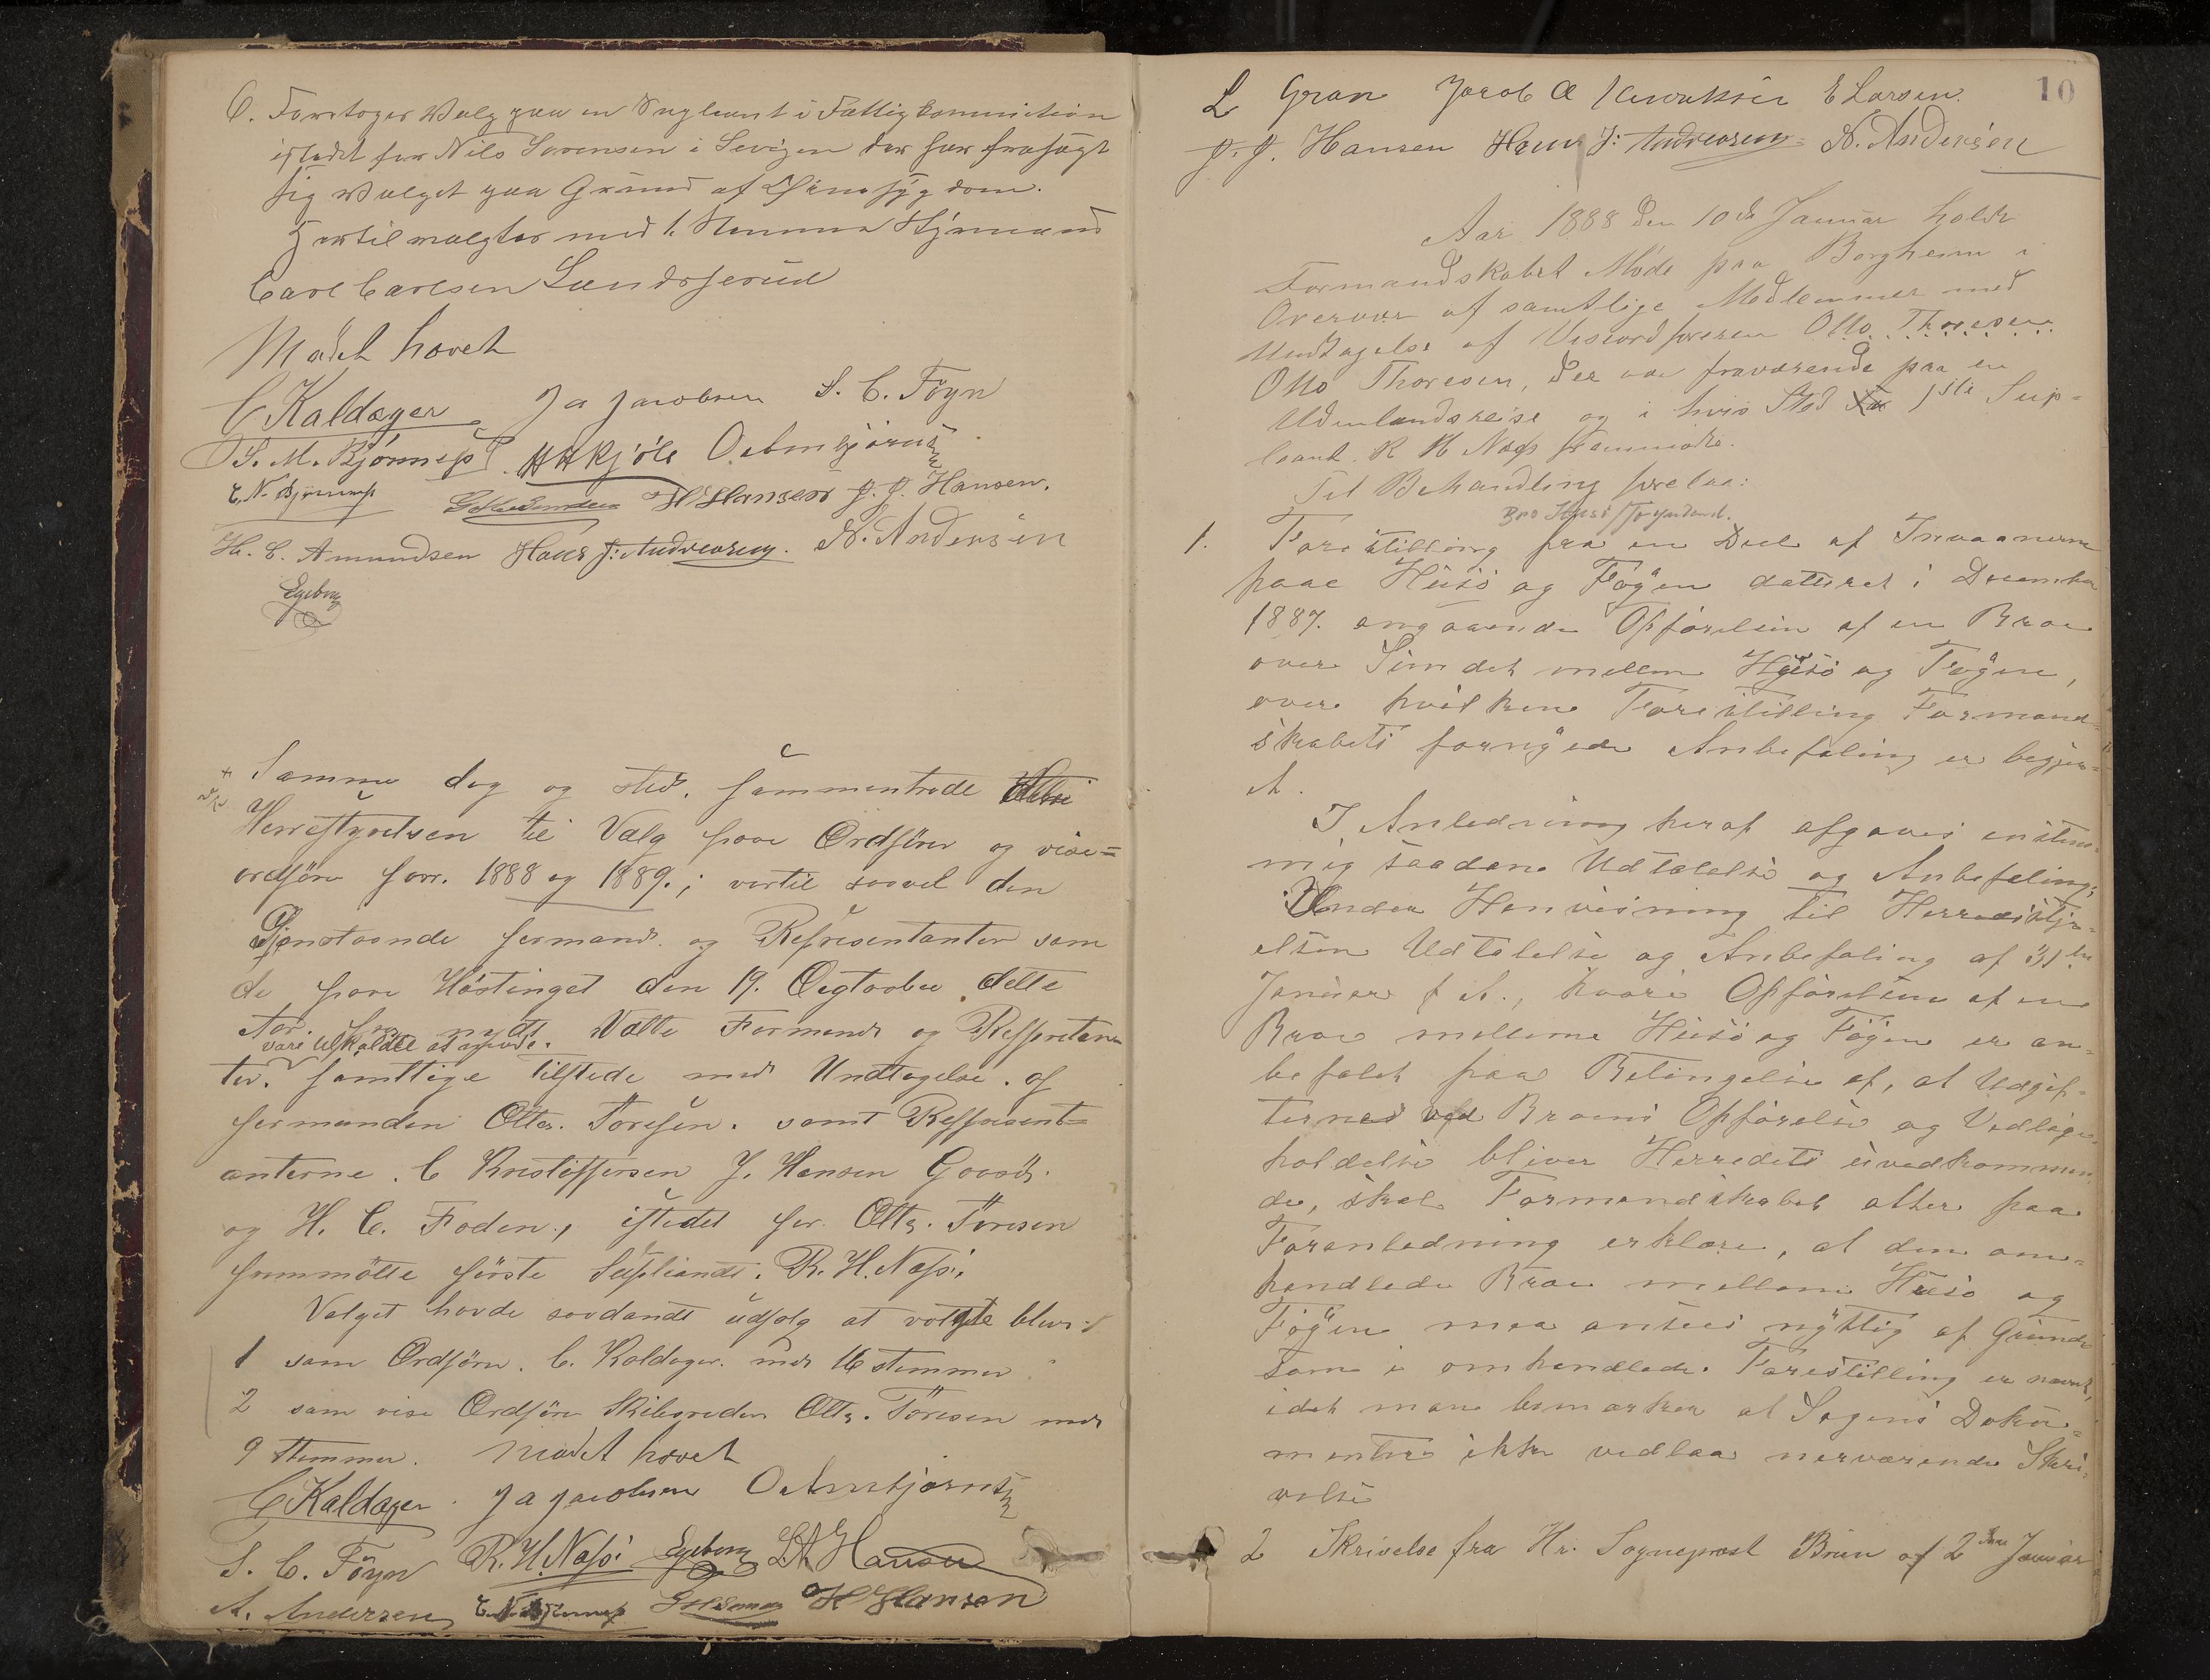 6. Foretoges Valg paa en Supleant i Fattigkommission
istedet for Nils Sørensen i Sevigen der har frasagt
sig Valget paa Grund af Øinesygdom.
Hertil valgtes med 1. Stemme Styrmand
Carl Carlsen Lundsherud
Mødet hævet
C Kaldager J A Jacobsen S. C. Föyn
S. M. Bjönness HKjöle O Arnbjörnsen
E. N. Bjönness H Hansen J. J. Hansen.
H. C. Amundsen Hans J: Andreasen. A. Andersen
Egeberg
Samme dag og sted. sammentrode
Herrestyrelsen til Valg paa Ordförer og vise=
ordförer for. 1888 og 1889.; vertil saavel den
Gjenstaande formand. og Representanter som
de paa Höstinget den 19. Ogtoober dette
Aar. Valte Formend og Represtan
vare tilkaldte at at møde.
ter. samtlige tilstede med Undtagelse. af
formanden Otto. Toresen. samt Represent=
anterne. C Kristoffersen J. Hansen Gaasö.
og H. C. Foden., istedet for Otto. Toresen
fremmötte förste Supliandt. R. H. Næss.
Valget havde saadandt udfalg at valgte blev.
1 som Ordförer. C. Kaldager. med 16 stemmer
2 som vise Ordförer Skibsreder Otto. Toresen med
9 stemmer. Mødet hævet
C Kaldager. J A Jacobsen O Arnbjörnsen
S. C. Föyn R. H. Næss. Egeberg L A Hansen
A. Andersen E. N. Bjönness H Hansen
10
L Gran Jacob A Henriksen E Larsen.
J. J. Hansen Hans J: Andreasen A. Andersen
Aar 1888 den 10de Januar holdt
Formandskabet Möde paa Borgheim i
Overvær af samtlige Medlemmer med
Undtagelse af Viseordföreren Otto Thoresen
Otto Thoresen, der var fraværende paa en
Udenlandsreise og i hvis Sted 1ste Sup-
leant R H Næss fremmödte.
Til Behandling forelaa:
Bro Husö / Föynland.
1. Forestilling fra en Deel af Invaanerne
paa Husö og Föyen datteret i December
1887. angaaende Opförelsen af en Broe
over Sundet mellem Husö og Föyen,
over hvilken Forestilling Formand-
skabets fornyede Anbefaling er begjær-
et.
I Anledning heraf afgaves enstem-
mig saadan Udtalelse og Anbefaling:
Under Henvisning til Herredsstyr-
elsen Udtalelse og Anbefaling af 31te
Januar f. A., hvori Opförelsen af en
Broe mellem Husö og Föyen er an-
befalet paa Betingelse af, at Udgif-
ternes ved Broens Opförelse og Vedlige-
holdelse bliver Herredets uvedkommen-
de, skal Formandskabet atter paa
Foranledning erklære, at den om-
handlede Broe mellem Husö og
Föyen maa ansees nyttig af Grunde
som i omhandlede Forestilling er nævnt,
idet man bemærker at Sagens Doku-
menter ikke vedlaa nærværende Skri-
velse
2 Skrivelse fra Hr. Sogneprest Brun af 2den Januar